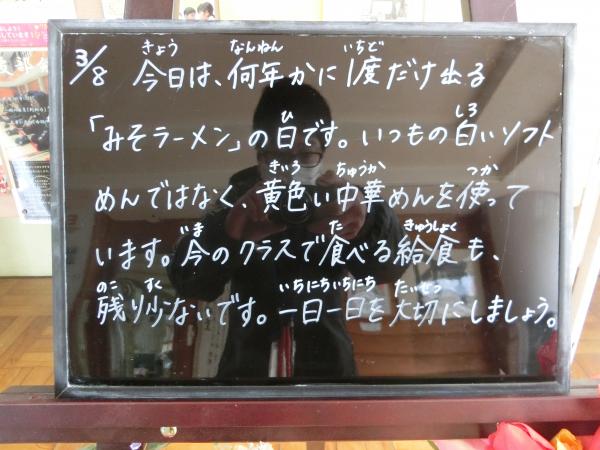 3/8 今日は、何年かに1度だけ出る
「みそラーメン」の日です。いつもの白いソフト
めんではなく、黄色い中華めんを使って
います。今のクラスで食べる給食も、
残り少ないです。一日一日を大切にしましょう。
きょう なんねん いちど
ひ しろ
きいろ ちゅうか つか
いま た きゅうしょく
のこ すく いちにちいちにち たいせつ